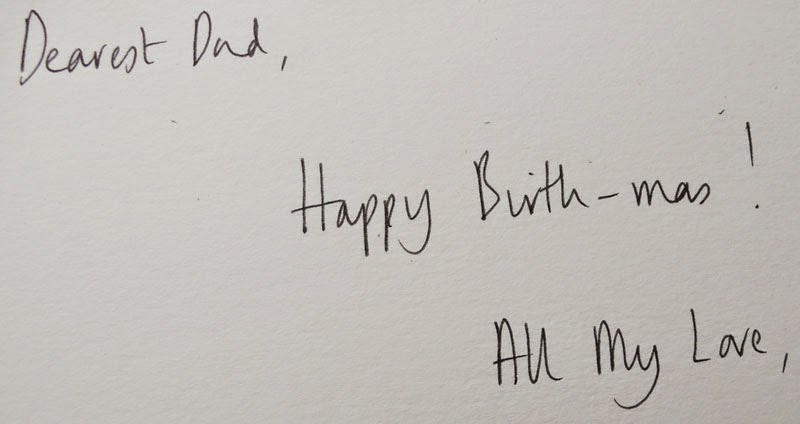 Dearest Dad,
Happy Birth-mas!
All My Love,